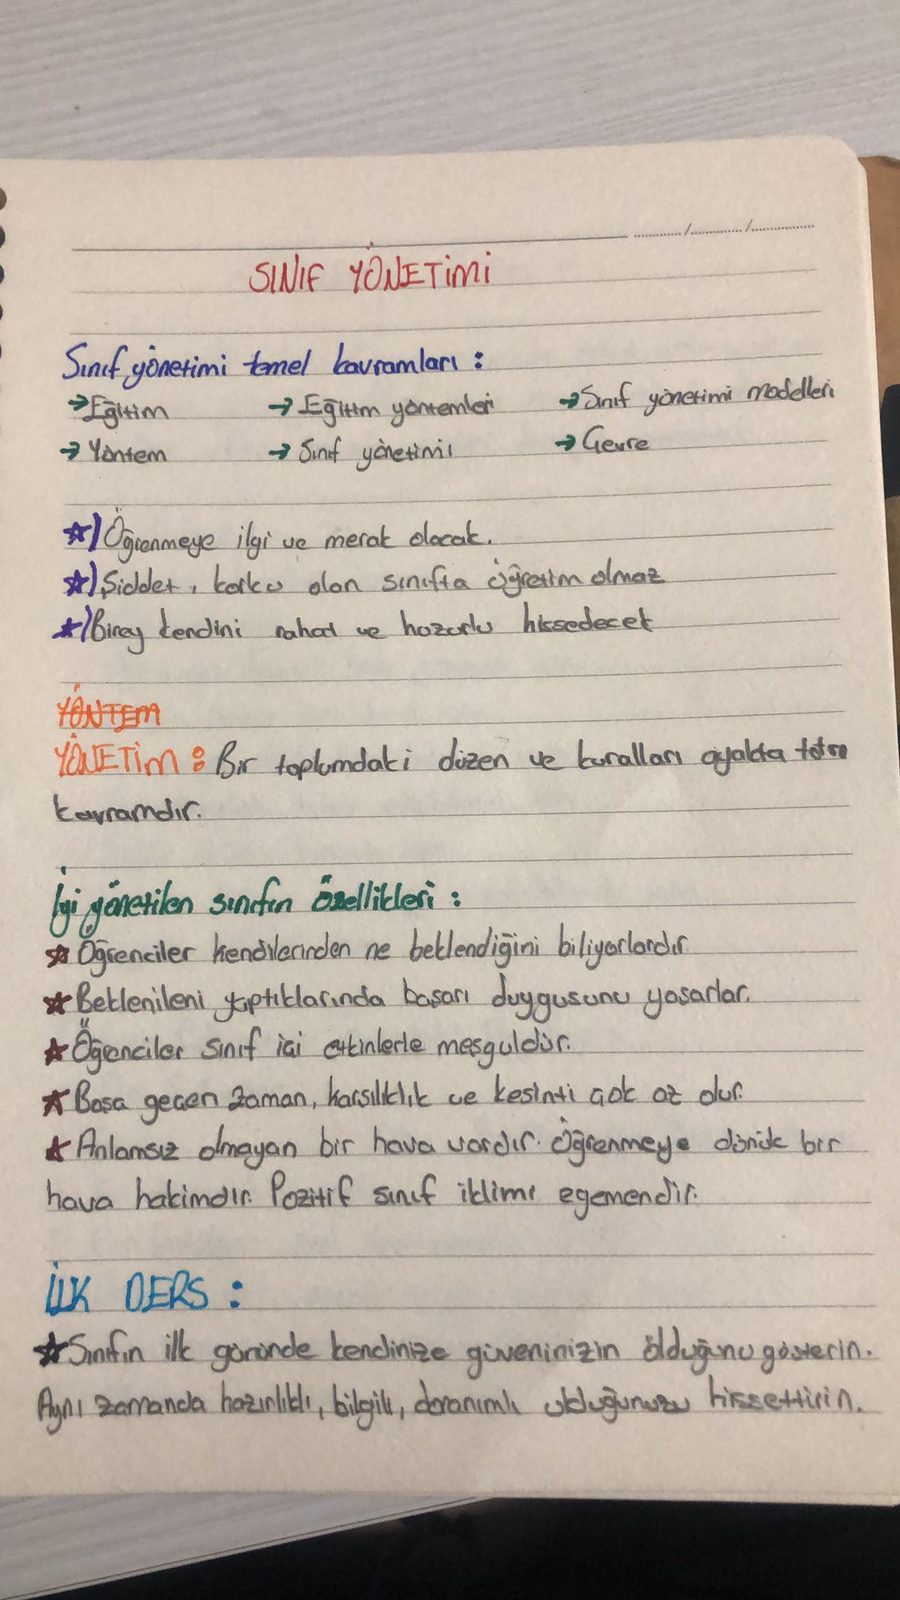 SINIF YÖNETİMİ
Sınıf yönetimi temel kavramları :
→ Eğitim → Eğitim yöntemleri → Sınıf yönetimi modelleri
→ Yöntem → Sınıf yönetimi → Çevre
☆) Öğrenmeye ilgi ve merak olacak.
☆) Şiddet, korku olan sınıfta öğretim olmaz
☆) Birey kendini rahat ve huzurlu hissedecek
YÖNTEM
YÖNETİM : Bir toplumdaki düzen ve kuralları ayakta tutan
kavramdır.
İyi yönetilen sınıfın özellikleri :
☆ Öğrenciler kendilerinden ne beklendiğini biliyorlardır.
☆ Beklenileni yaptıklarında başarı duygusunu yaşarlar.
☆ Öğrenciler sınıf içi etkinlerle meşguldür.
☆ Boşa geçen zaman, karşılıklık ve kesinti çok az olur.
☆ Anlamsız olmayan bir hava vardır. Öğrenmeye dönük bir
hava hakimdir. Pozitif sınıf iklimi egemendir.
İLK DERS :
☆ Sınıfın ilk gününde kendinize güveninizin olduğunu gösterin.
Aynı zamanda hazırlıklı, bilgili, donanımlı olduğunuzu hissettirin.